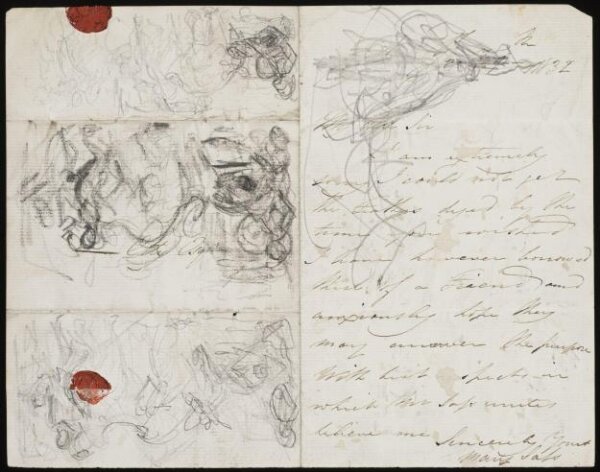 1832
My Dear Sir
I am extremely
sorry I could not get
the by the
time you wished
I have however borrowed
these of a Friend and
anxiously hope they
may answer the purpose
With best respects in
which Mr unites
believe me
Sincerely Yours
Mary